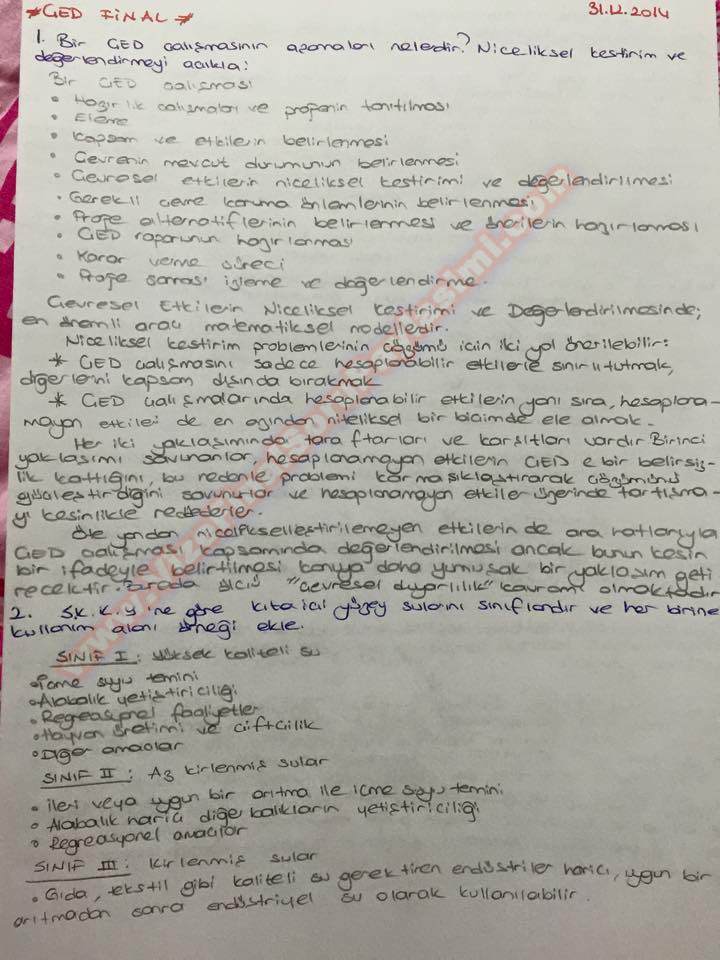 *ÇED FİNAL*
31.12.2014
1. Bir ÇED çalışmasının aşamaları nelerdir? Niceliksel kestirim ve
değerlendirmeyi açıkla:
Bir ÇED çalışması
• Hazırlık çalışmaları ve projenin tanıtılması
• Eleme
• Kapsam ve etkilerin belirlenmesi
• Çevrenin mevcut durumunun belirlenmesi
• Çevresel etkilerin niceliksel kestirimi ve değerlendirilmesi
• Gerekli çevre koruma önlemlerinin belirlenmesi
• Proje alternatiflerinin belirlenmesi ve önerilerin hazırlanması
• ÇED raporunun hazırlanması
• Karar verme süreci
• Proje sonrası izleme ve değerlendirme.
Çevresel Etkilerin Niceliksel Kestirimi ve Değerlendirilmesinde;
en önemli aracı matematiksel modellerdir.
Niceliksel kestirim problemlerinin çözümü için iki yol önerilebilir:
* ÇED çalışmasını sadece hesaplanabilir etkilerle sınırlı tutmak,
diğerlerini kapsam dışında bırakmak
* ÇED çalışmalarında hesaplanabilir etkilerin yanı sıra, hesaplana-
mayan etkileri de en azından niteliksel bir biçimde ele almak.
Her iki yaklaşımında taraftarları ve karşıtları vardır. Birinci
yaklaşımı savunanlar, hesaplanamayan etkilerin ÇED e bir belirsiz-
lik kattığını, bu nedenle problemi karmaşıklaştırarak çözümünü
güçleştirdiğini savunurlar ve hesaplanamayan etkiler üzerinde tartışma-
yı kesinlikle reddederler.
Öte yandan nicelikselleştirilemeyen etkilerin de ana hatlarıyla
ÇED çalışması kapsamında değerlendirilmesi ancak bunun kesin
bir ifadeyle belirtilmesi konuya daha yumuşak bir yaklaşım geti
recektir. Burada ölçü "çevresel duyarlılık" kavramı olmaktadır
2. S.K.K.Y'ne göre kıtaiçi yüzey sularını sınıflandır ve her birine
kullanım alanı örneği ekle.
SINIF I : Yüksek kaliteli su
• İçme suyu temini
• Alabalık yetiştiriciliği
• Regreasyonel faaliyetler
• Hayvan üretimi ve çiftçilik
• Diğer amaçlar
SINIF II : Az kirlenmiş sular
• ileri veya uygun bir arıtma ile içme suyu temini
• Alabalık harici diğer balıkların yetiştiriciliği
• Regreasyonel amaçlar
SINIF III : Kirlenmiş sular
• Gıda, tekstil gibi kaliteli su gerektiren endüstriler harici, uygun bir
arıtmadan sonra endüstriyel su olarak kullanılabilir.